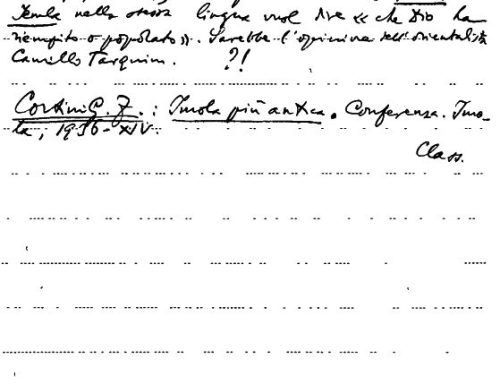 Jemla nella stessa lingua vuol dire « che Dio ha
riempito o popolato ». Sarebbe l'opinione dell'orientalista
Camillo Tarquini. ?!
Cortini G. F.: Imola più antica. Conferenza. Imo-
la, 1936-XIV.
Class.